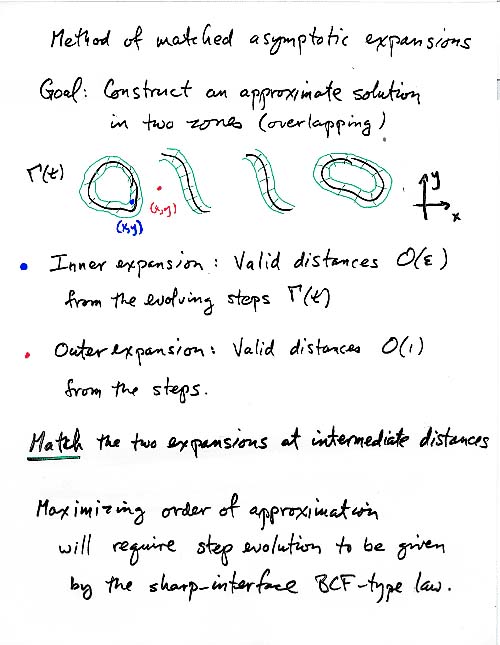 Method of matched asymptotic expansions
Goal: Construct an approximate solution
in two zones (overlapping)
Γ(t)
(x,y)
(x,y)
y
x
• Inner expansion: Valid distances O(ε)
from the evolving steps Γ(t)
• Outer expansion: Valid distances O(1)
from the steps.
Match the two expansions at intermediate distances
Maximizing order of approximation
will require step evolution to be given
by the sharp-interface BCF-type law.